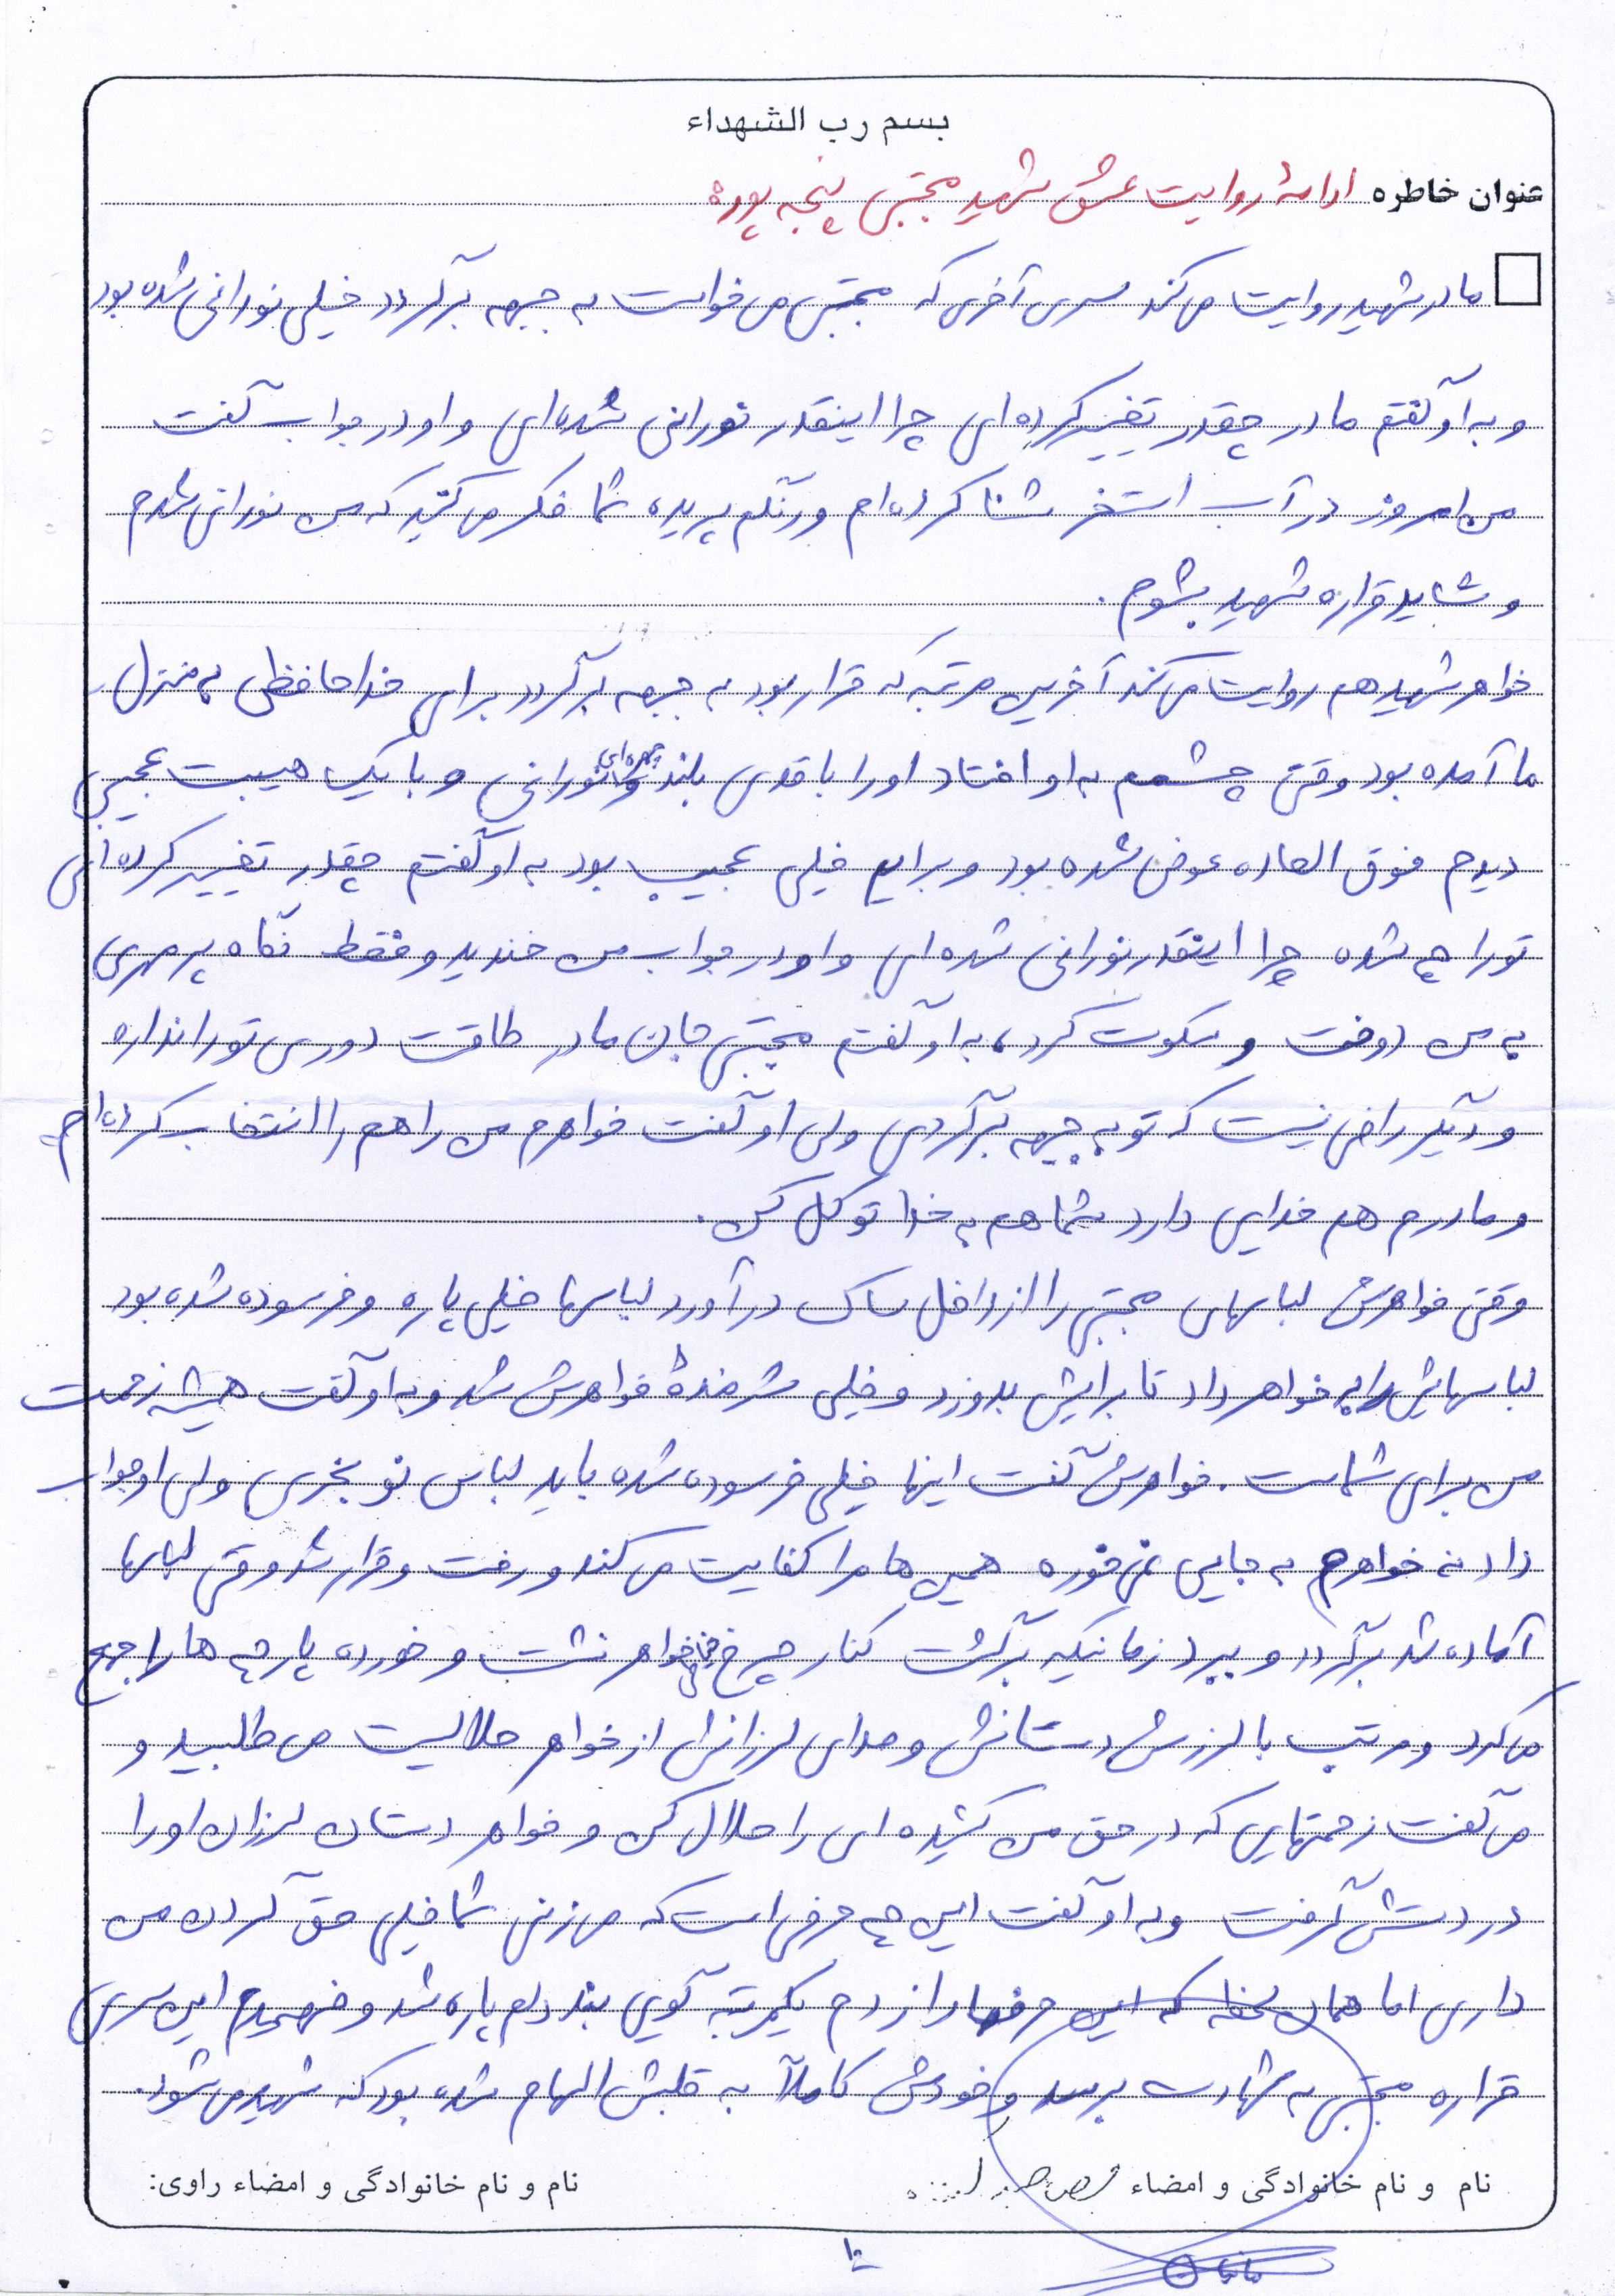 بسم رب الشهداء
عنوان خاطره ادامهٔ روایت عشق شهید مجتبی پنجه پوره
مادر شهید روایت می‌کند سری آخری که مجتبی می‌خواست به جبهه برگردد خیلی نورانی شده بود
و به او گفتم مادر چقدر تغییر کرده‌ای چرا اینقدر نورانی شده‌ای و او در جواب گفت
من امروز در آب استخر شنا کرده‌ام و رنگم پریده شما فکر می‌کنید که من نورانی شدم
و شاید قراره شهید بشوم.
خواهر شهید هم روایت می‌کند آخرین مرتبه که قرار بود به جبهه برگردد برای خداحافظی به منزل
ما آمده بود وقتی چشمم به او افتاد او را با قدی بلند و چهره‌ای نورانی و با یک هیبت عجیبی
دیدم فوق العاده عوض شده بود و برایم خیلی عجیب بود به او گفتم چقدر تغییر کرده‌ای
تو را چه شده چرا اینقدر نورانی شده‌ای و او در جواب من خندید و فقط نگاه پر مهری
به من دوخت و سکوت کرد، به او گفتم مجتبی جان مادر طاقت دوری تو را نداره
و دیگر راضی نیست که تو به جبهه برگردی ولی او گفت خواهرم من راهم را انتخاب کرده‌ام
و مادرم هم خدایی دارد شما هم به خدا توکل کن.
وقتی خواهرش لباسهای مجتبی را از داخل ساک درآورد لباسها خیلی پاره و فرسوده شده بود
لباسهایش را به خواهر داد تا برایش بدوزد و خیلی شرمندهٔ خواهرش شد و به او گفت همیشه زحمت
من برای شماست. خواهرش گفت اینها خیلی فرسوده شده باید لباس نو بخری ولی او جواب
داد نه خواهرم به جایی نمی‌خوره همین ها مرا کفایت می‌کند و رفت و قرار شد وقتی لباسها
آماده شد برگردد و ببرد زمانیکه برگشت کنار چرخ خیاطی خواهر نشست و خورده پارچه ها را جمع
می‌کرد و مرتب با لرزش دستانش و صدای لرزانش از خواهر حلالیت می‌طلبید و
می‌گفت زحمتهایی که در حق من کشیده‌ای را حلال کن و خواهر دستان لرزان او را
در دستش گرفت و به او گفت این چه حرفی است که می‌زنی شما خیلی حق گردن من
داری اما همان لحظه که این حرفها را زدم یکمرتبه گویی بند دلم پاره شد و فهمیدم این سری
قراره مجتبی به شهادت برسد و خودش کاملاً به قلبش الهام شده بود که شهید می‌شود.
نام و نام خانوادگی و امضاء
نام و نام خانوادگی و امضاء راوی: